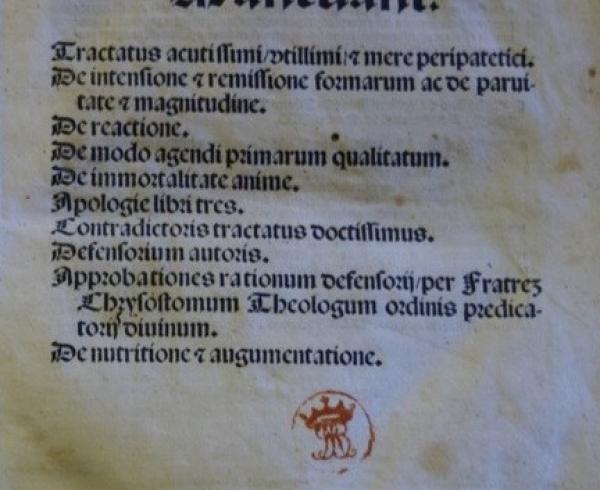 Tractatus acutissimi/vtillimi/⁊ mere peripatetici.
De intensione ⁊ remissione formarum ac de parui-
tate ⁊ magnitudine.
De reactione.
De modo agendi primarum qualitatum.
De immortalitate anime.
Apologie libri tres.
Contradictoris tractatus doctissimus.
Defensorium autoris.
Approbationes rationum defensorij/per Fratreʒ
Chrysostomum Theologum ordinis predica-
torij diuinum.
De nutritione ⁊ augumentatione.